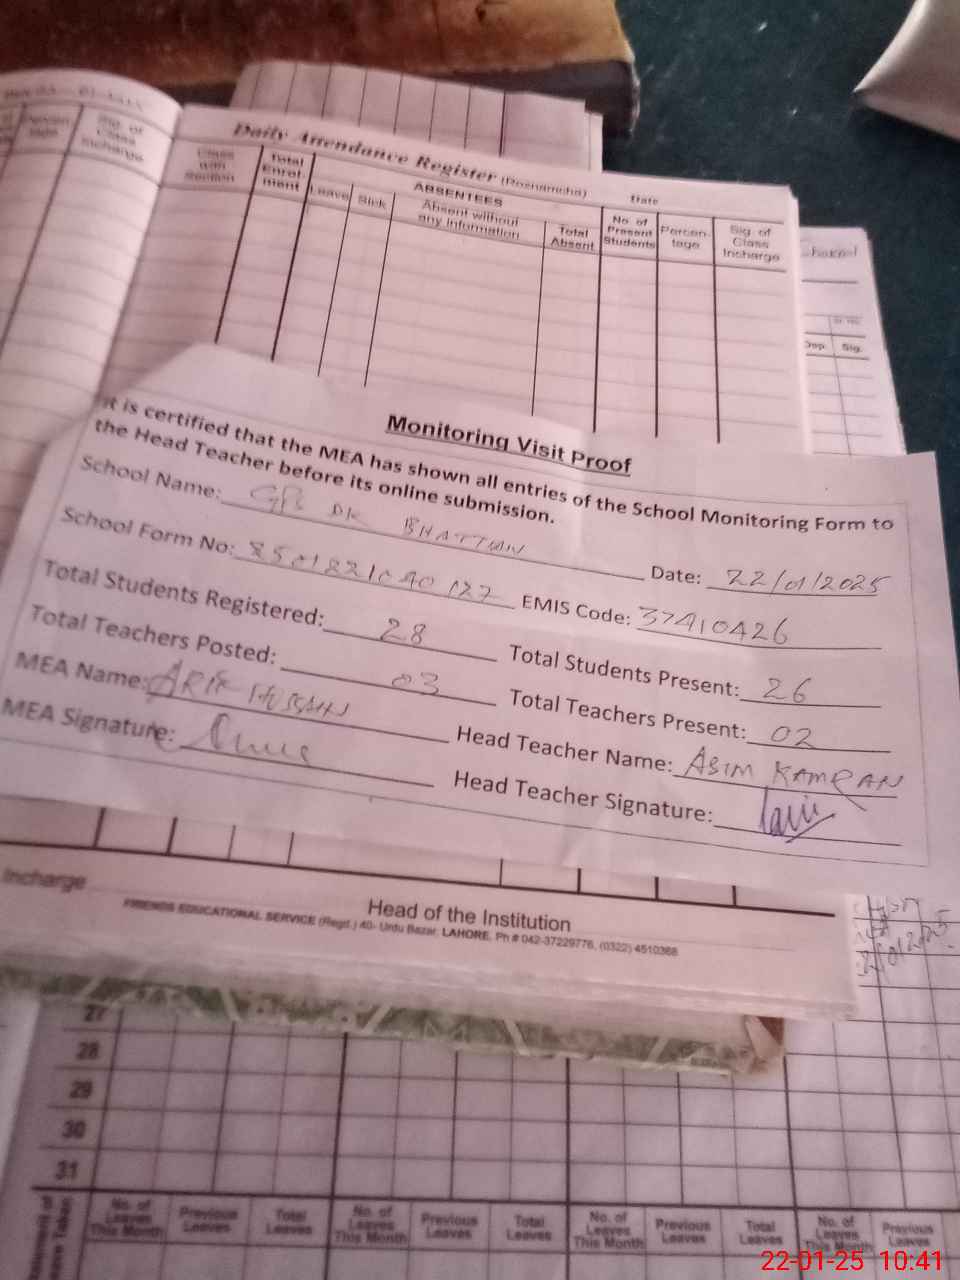 Sig. of
Class
Incharge
Daily Attendance Register (Roznamcha) Date
Class
with
Section
Total
Enrol-
ment
ABSENTEES
Leave
Sick
Absent without
any Information
Total
Absent
No. of
Present
Students
Percen-
tage
Sig. of
Class
Incharge
Sig.
Monitoring Visit Proof
It is certified that the MEA has shown all entries of the School Monitoring Form to
the Head Teacher before its online submission.
School Name: GPS DK BHATTIAN
Date: 22/01/2025
School Form No:
EMIS Code: 37410426
Total Students Registered: 28
Total Students Present: 26
Total Teachers Posted: 03
Total Teachers Present: 02
MEA Name: ARIF HUSSAIN
Head Teacher Name: ASIM KAMRAN
MEA Signature:
Head Teacher Signature:
Incharge
Head of the Institution
FRIENDS EDUCATIONAL SERVICE (Regd.) 40- Urdu Bazar, LAHORE. Ph # 042-37229776, (0322) 4510368
27
28
29
30
31
No. of
Leaves
This Month
Previous
Leaves
Total
Leaves
No. of
Leaves
This Month
Previous
Leaves
Total
Leaves
No. of
Leaves
This Month
Previous
Leaves
Total
Leaves
No. of
Leaves
This Month
Previous
Leaves
22-01-25 10:41